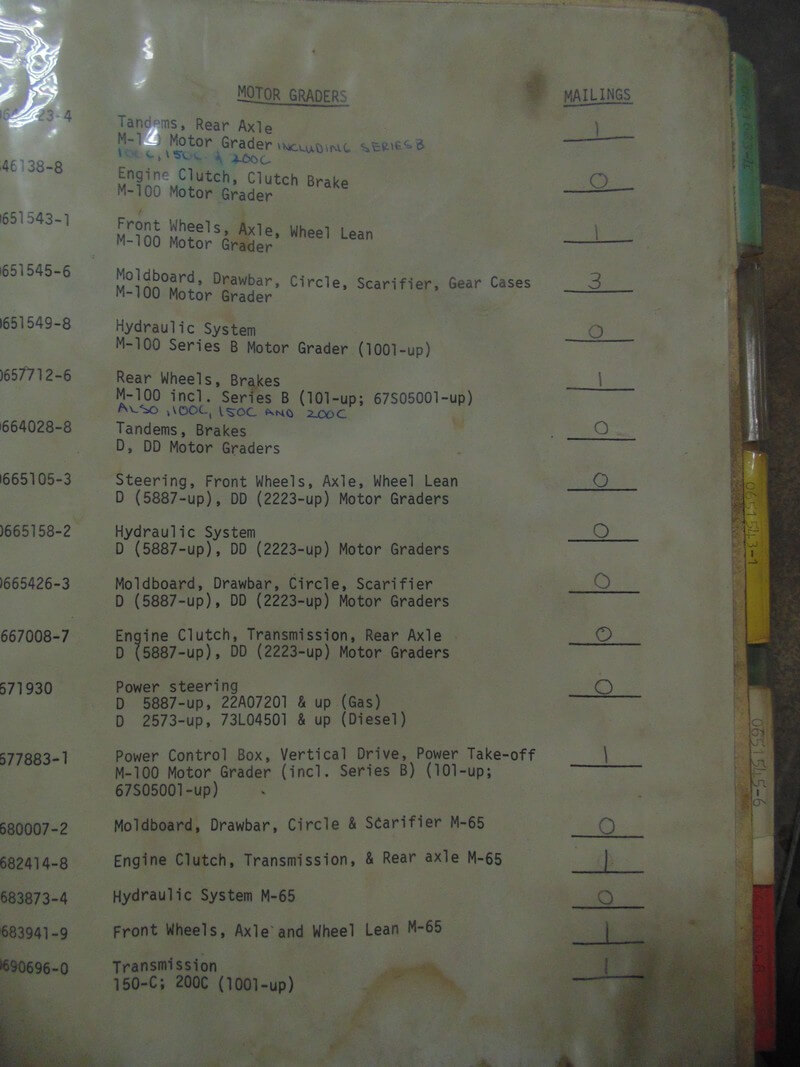 MOTOR GRADERS MAILINGS
23-4 Tandems, Rear Axle 1
M-100 Motor Grader INCLUDING SERIES B
100C, 150C & 200C
46138-8 Engine Clutch, Clutch Brake 0
M-100 Motor Grader
0651543-1 Front Wheels, Axle, Wheel Lean 1
M-100 Motor Grader
0651545-6 Moldboard, Drawbar, Circle, Scarifier, Gear Cases 3
M-100 Motor Grader
0651549-8 Hydraulic System 0
M-100 Series B Motor Grader (1001-up)
0657712-6 Rear Wheels, Brakes 1
M-100 incl. Series B (101-up; 67S05001-up)
ALSO 100C, 150C AND 200C
0664028-8 Tandems, Brakes 0
D, DD Motor Graders
0665105-3 Steering, Front Wheels, Axle, Wheel Lean 0
D (5887-up), DD (2223-up) Motor Graders
0665158-2 Hydraulic System 0
D (5887-up), DD (2223-up) Motor Graders
0665426-3 Moldboard, Drawbar, Circle, Scarifier 0
D (5887-up), DD (2223-up) Motor Graders
667008-7 Engine Clutch, Transmission, Rear Axle 0
D (5887-up), DD (2223-up) Motor Graders
671930 Power steering 0
D 5887-up, 22A07201 & up (Gas)
D 2573-up, 73L04501 & up (Diesel)
677883-1 Power Control Box, Vertical Drive, Power Take-off 1
M-100 Motor Grader (incl. Series B) (101-up;
67S05001-up)
680007-2 Moldboard, Drawbar, Circle & Scarifier M-65 0
682414-8 Engine Clutch, Transmission, & Rear axle M-65 1
683873-4 Hydraulic System M-65 0
683941-9 Front Wheels, Axle and Wheel Lean M-65 1
0690696-0 Transmission 1
150-C; 200C (1001-up)
0651543-1
0651545-6